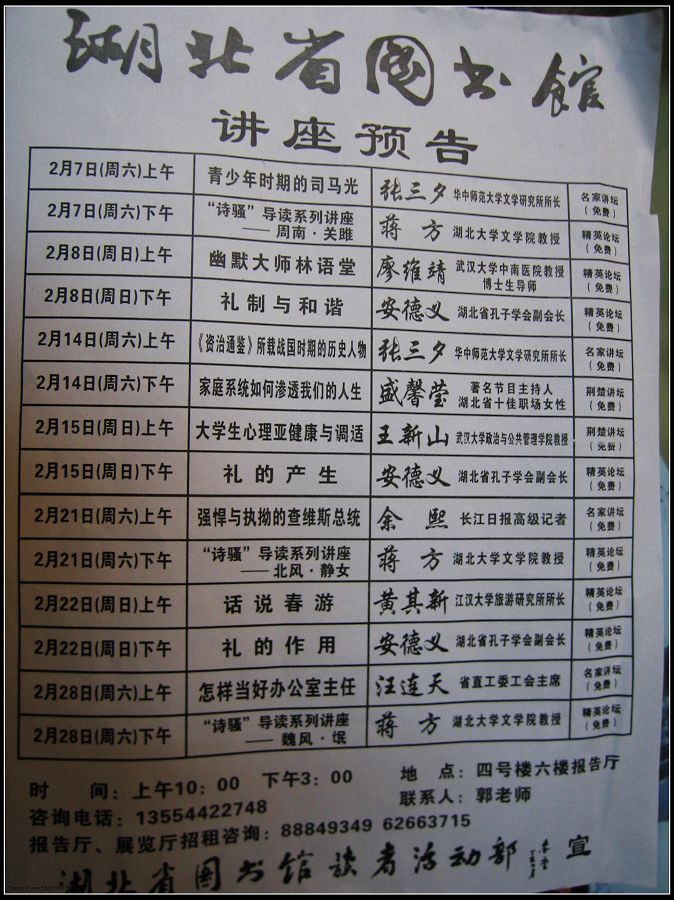 湖北省图书馆
讲座预告
2月7日(周六)上午 青少年时期的司马光 张三夕 华中师范大学文学研究所所长 名家讲坛（免费）
2月7日(周六)下午 “诗骚”导读系列讲座——周南·关雎 蒋方 湖北大学文学院教授 精英论坛（免费）
2月8日(周日)上午 幽默大师林语堂 廖维靖 武汉大学中南医院教授 博士生导师 精英论坛（免费）
2月8日(周日)下午 礼制与和谐 安德义 湖北省孔子学会副会长 精英论坛（免费）
2月14日(周六)上午 《资治通鉴》所载战国时期的历史人物 张三夕 华中师范大学文学研究所所长 名家讲坛（免费）
2月14日(周六)下午 家庭系统如何渗透我们的人生 盛馨莹 著名节目主持人 湖北省十佳职场女性 荆楚讲坛（免费）
2月15日(周日)上午 大学生心理亚健康与调适 王新山 武汉大学政治与公共管理学院教授 荆楚讲坛（免费）
2月15日(周日)下午 礼的产生 安德义 湖北省孔子学会副会长 精英论坛（免费）
2月21日(周六)上午 强悍与执拗的查维斯总统 余熙 长江日报高级记者 名家讲坛（免费）
2月21日(周六)下午 “诗骚”导读系列讲座——北风·静女 蒋方 湖北大学文学院教授 精英论坛（免费）
2月22日(周日)上午 话说春游 黄其新 江汉大学旅游研究所所长 精英论坛（免费）
2月22日(周日)下午 礼的作用 安德义 湖北省孔子学会副会长 精英论坛（免费）
2月28日(周六)上午 怎样当好办公室主任 汪连天 省直工委工会主席 名家讲坛（免费）
2月28日(周六)下午 “诗骚”导读系列讲座——魏风·氓 蒋方 湖北大学文学院教授 精英论坛（免费）
时 间：上午10：00 下午3：00 地 点：四号楼六楼报告厅
咨询电话：13554422748 联系人：郭老师
报告厅、展览厅招租咨询：88849349 62663715
湖北省图书馆读者活动部 宣